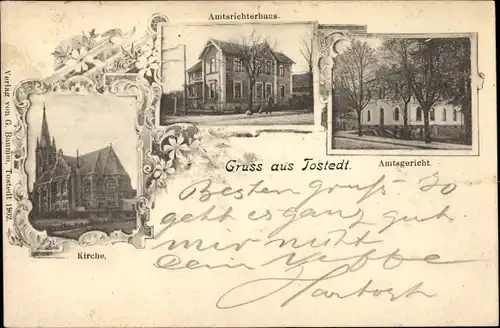 Amtsrichterhaus.
Verlag von G. Bauum, Tostedt 1902.
Gruss aus Tostedt.
Amtsgericht.
Kirche.
Besten Gruß. So
geht es ganz gut
mir nicht
Dein Neffe